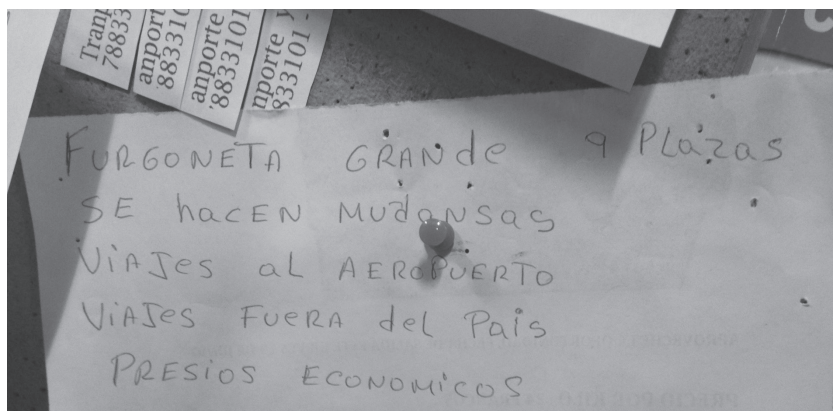 Tranp
78833
anport
883310
anporte
8833101
nporte y
833101 -
FURGONETA GRANde 9 PLazas
SE hacEN MUdaNSas
ViAJes aL AEROPUERTO
ViAJes FUeRA del Pais
PRESiOS ECONOMICOS
PRECIO POR KILO